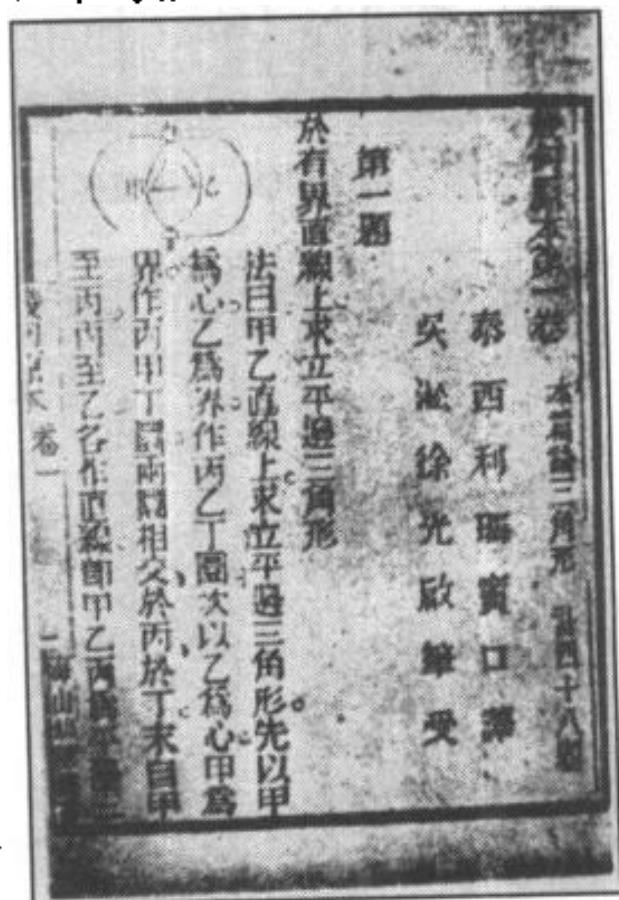 幾何原本第一卷 本篇論三角形 計四十八題
泰西利瑪竇口譯
吳淞徐光啟筆受
第一題
於有界直線上求立平邊三角形
法曰甲乙直線上求立平邊三角形先以甲
爲心乙爲界作丙乙丁圜次以乙爲心甲爲
界作丙甲丁圜兩圜相交於丙於丁末自甲
至丙丙至乙各作直線卽甲乙丙
甲
乙
幾何原本 卷一